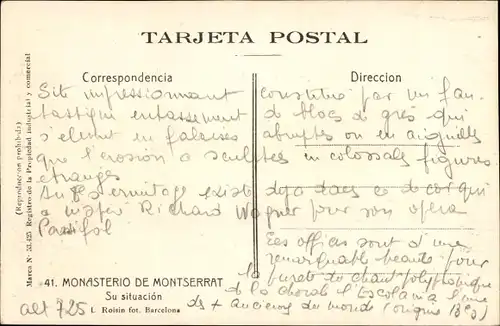 TARJETA POSTAL
Correspondencia
Direccion
Site impressionnant constitué par un fan-
tastique entassement de blocs de grès qui
s'élèvent en falaises abruptes ou en aiguilles
que l'érosion a sculptées en colossales figures
étranges
existe déjà dans ce décor qui
a inspiré Richard Wagner pour son opéra
Parsifal
Les offices sont d'une
remarquable beauté pour
la pureté du chant polyphonique
de la chorale l'Escolania l'une
des + anciennes du monde (origine
(Reproduccion prohibida)
Marca N.º 53.425 Registro de la Propiedad industrial y comercial
41. MONASTERIO DE MONTSERRAT
Su situación
L. Roisin fot. Barcelona
alt 725